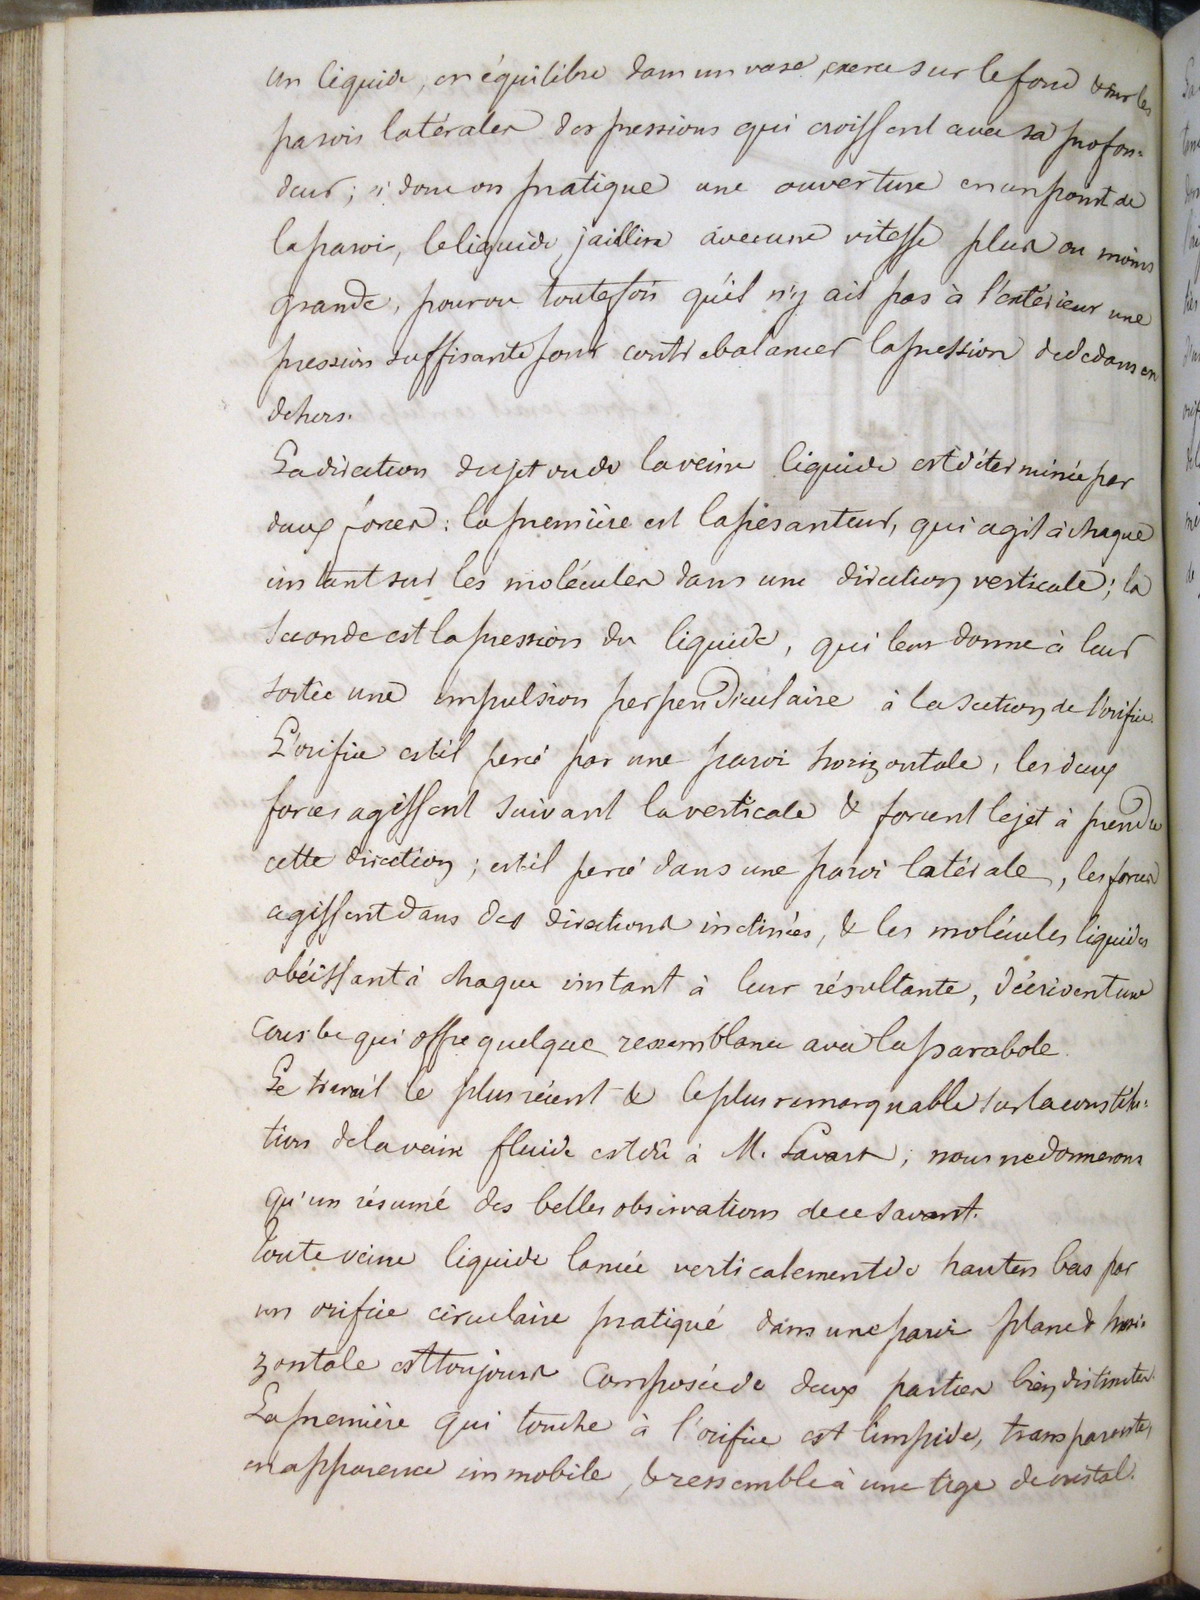 un liquide, en équilibre dans un vase, exerce sur le fond & sur les
parois latérales des pressions qui croissent avec sa profon=
deur; si donc on pratique une ouverture en un point de
la paroi, le liquide jaillira avec une vitesse plus ou moins
grande, pourvu toutefois qu'il n'y ait pas à l'extérieur une
pression suffisante pour contrebalancer la pression de dedans en
dehors.
La direction du jet ou de la veine liquide est déterminée par
deux forces: la première est la pesanteur, qui agit à chaque
instant sur les molécules dans une direction verticale; la
seconde est la pression du liquide, qui leur donne à leur
sortie une impulsion perpendiculaire à la section de l'orifice.
L'orifice est-il percé par une paroi horizontale, les deux
forces agissent suivant la verticale & forcent le jet à prendre
cette direction; est-il percé dans une paroi latérale, les forces
agissent dans des directions inclinées, & les molécules liquides
obéissant à chaque instant à leur résultante, décrivent une
courbe qui offre quelque ressemblance avec la parabole.
Le travail le plus récent & le plus remarquable sur la constitu=
tion de la veine fluide est dû à M. Savart; nous ne donnerons
qu'un résumé des belles observations de ce savant.
Toute veine liquide lancée verticalement de haut en bas par
un orifice circulaire pratiqué dans une paroi plane & hori=
zontale est toujours composée de deux parties bien distinctes.
La première qui touche à l'orifice est limpide, transparente,
en apparence immobile, & ressemble à une tige de cristal.